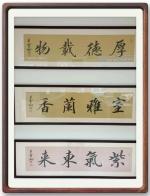 厚德載物
室雅蘭香
紫氣東来